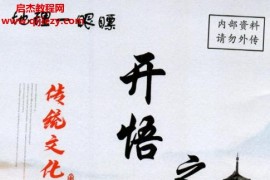 启杰教程网
qijie8.com
地理一眼瞟
内部资料
请勿外传
开悟之
传统文化